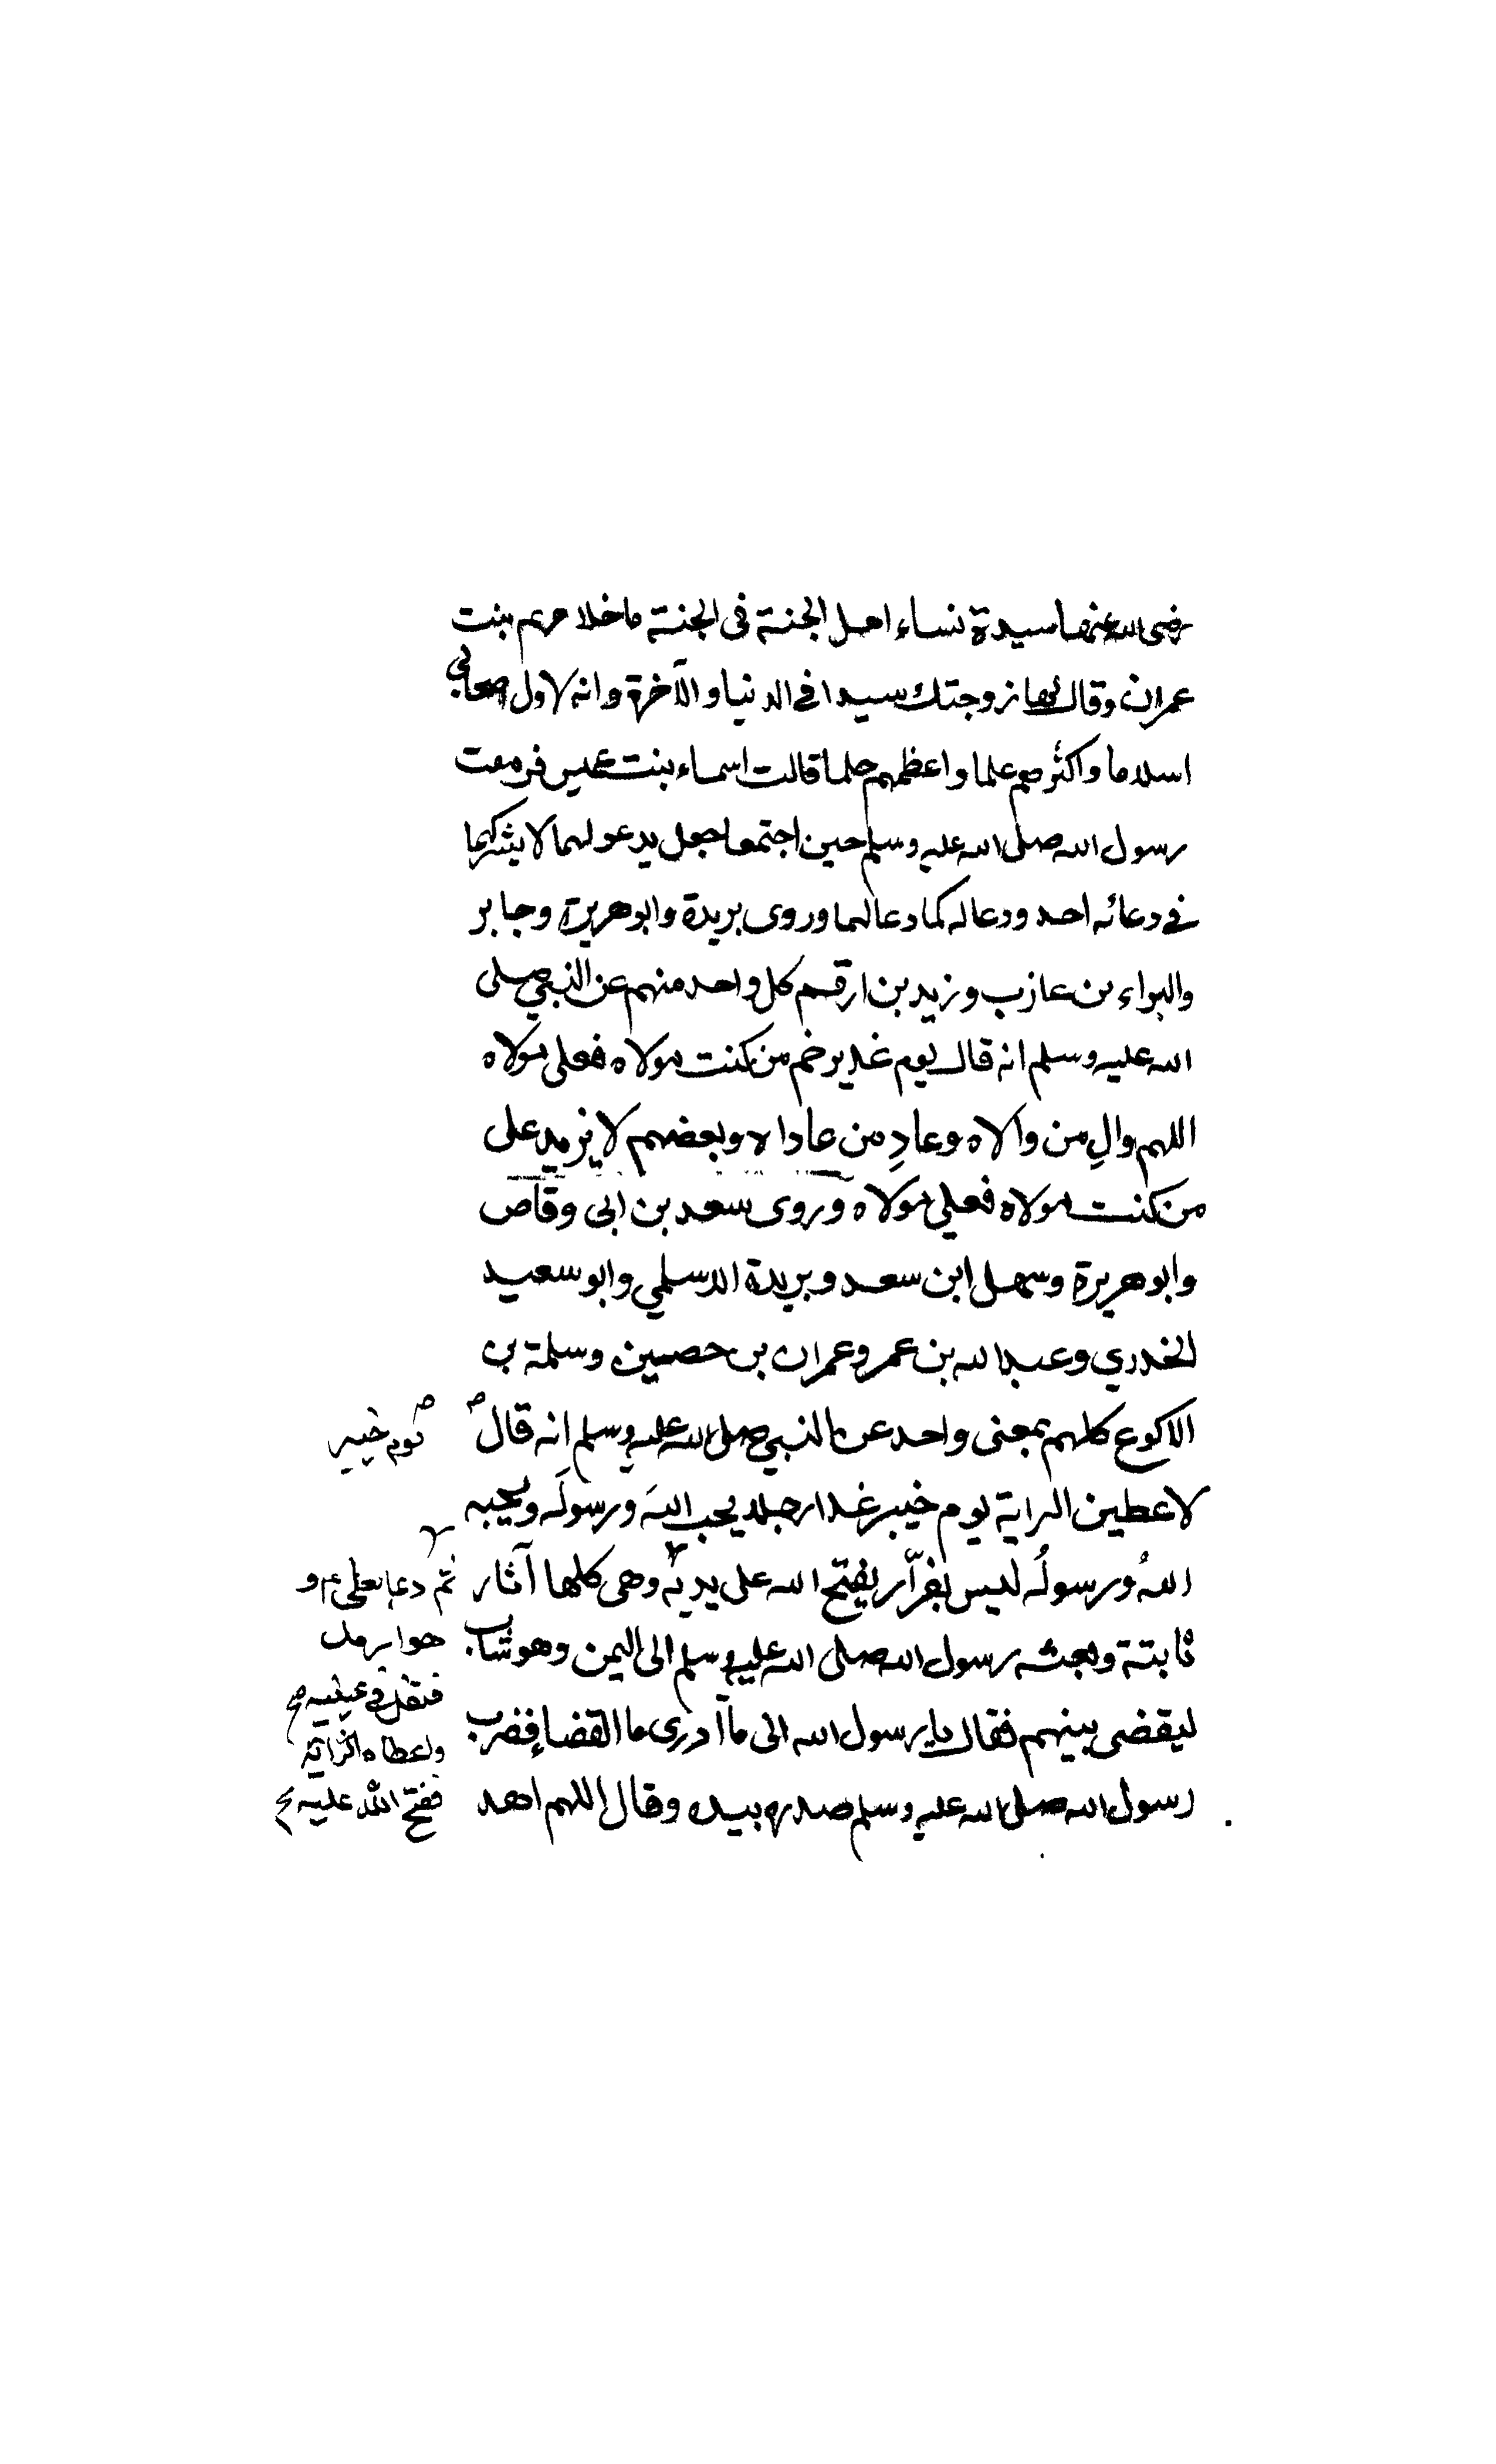 رضى الله عنها سيدة نساء اهل الجنة فى الجنة ما خلا مريم بنت
عمران وقال لها زوجتك سيدا في الدنيا والآخرة وانه لاول اصحابي
اسلاما واكثرهم علما واعظمهم حلما قالت اسماء بنت عميس فرمقت
رسول الله صلى الله عليه وسلم حين اجتمعا جعل يدعو لهما لا يشركهما
في دعائه احد ودعا له كما دعا لهما وروى بريدة وابو هريرة وجابر
والبراء بن عازب وزيد بن ارقم كل واحد منهم عن النبي صلى
الله عليه وسلم انه قال يوم غدير خم من كنت مولاه فعلى مولاه
اللهم والِ من والاه وعادِ من عاداه وبعضهم لا يزيد على
من كنت مولاه فعلي مولاه وروى سعد بن ابى وقاص
وابو هريرة وسهل ابن سعد وبريدة الاسلمي وابو سعيد
الخدري وعبد الله بن عمر وعمران بن حصين وسلمة بن
الاكوع كلهم بمعنى واحد عن النبي صلى الله عليه وسلم انه قال
يوم خيبر
لاعطين الراية يوم خيبر غدا رجلا يحب اللهَ ورسولَه ويحبه
اللهُ ورسولُه ليس بفرّار يفتح الله على يديه وهى كلها آثار
ثم دعا بعلى ع م و
هو ارمد
فتفل في عينيه
واعطاه الراية
ففتح الله عليه
ثابتة وبعثه رسول الله صلى الله عليه وسلم الى اليمن وهو شاب
ليقضى بينهم فقال يا رسول الله انى ما آدرى ما القضاء فضرب
رسول الله صلى الله عليه وسلم صدره بيده وقال اللهم اهد